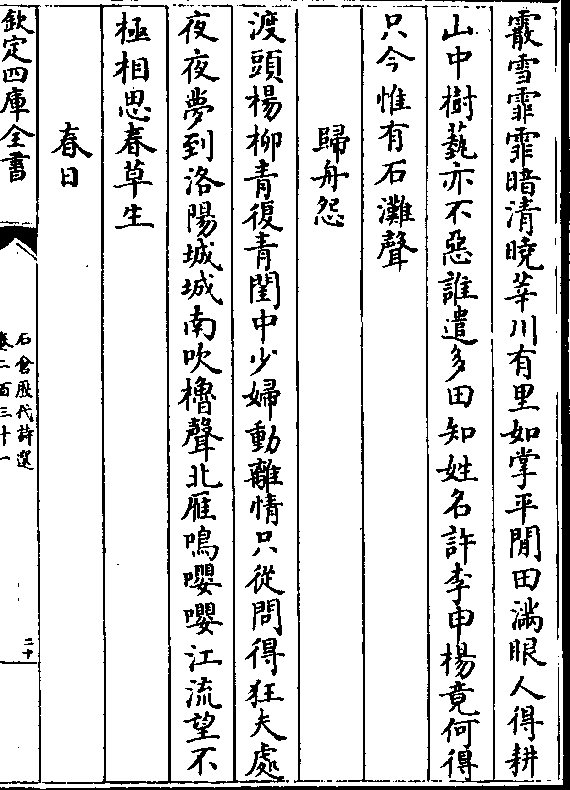 霰雪霏霏暗清曉莘川有里如掌平閒田滿眼人得耕
山中樹藝亦不惡誰遣多田知姓名許李申楊竟何得
只今惟有石灘聲
歸舟怨
渡頭楊柳青復青閨中少婦動離情只從問得狂夫處
夜夜夢到洛陽城城南吹櫓聲北雁鳴嚶嚶江流望不
極相思春草生
春日
欽定四庫全書
石倉歷代詩選
卷二百三十一
二十